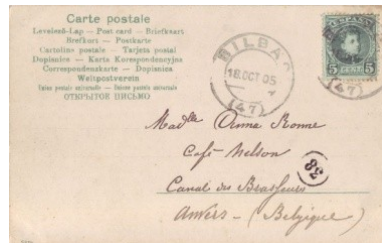 Carte postale
Levelező-Lap — Post card — Briefkaart
Brefkort — Postkarte
Cartolina postale — Tarjeta postal
Dopisnice — Karta Korespondencyjna
Correspondenzkarte — Dopisnica
Weltpostverein
Union postale universelle — Unione postale universale
ОТКРЫТОЕ ПИСЬМО
BILBAO
18.OCT 05
(47)
ESPAÑA
5 CENT. 5
(47)
Madlle Anna Ronne
Café Nelson
38
Canal des Brasseurs
Anvers — (Belgique)